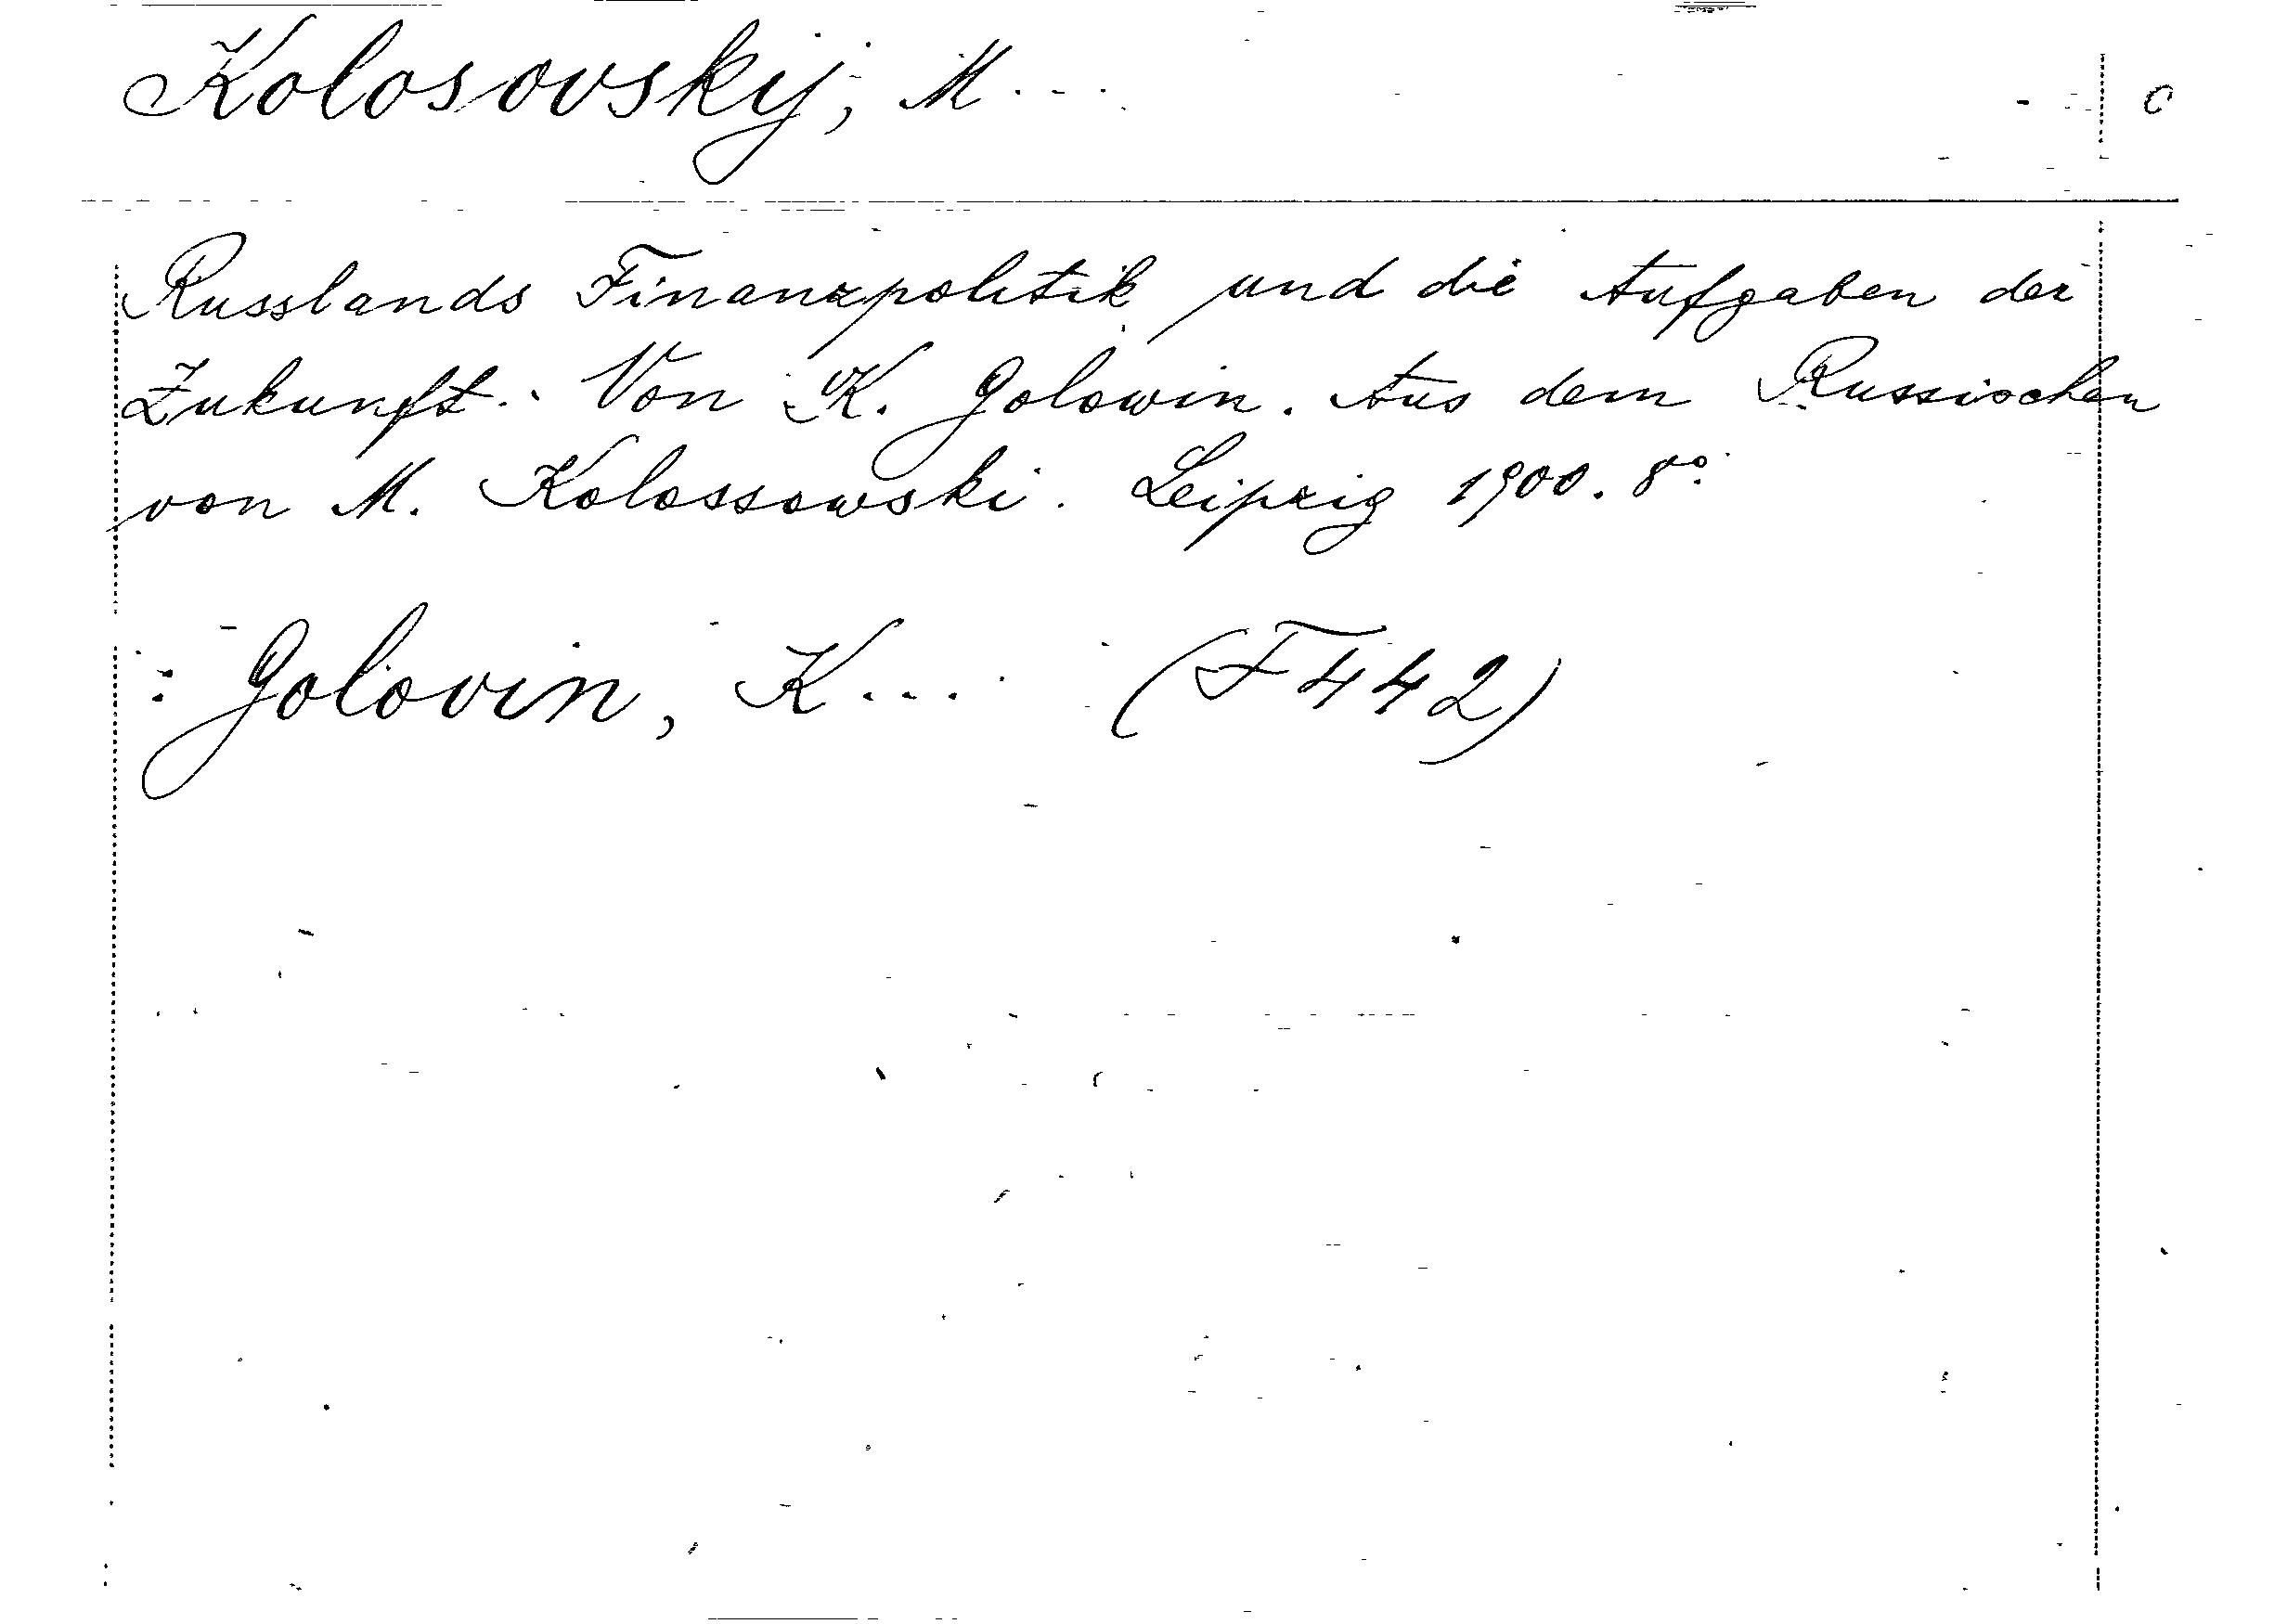 Kolosovskij, M... C
Russlands Finanzpolitik und die Aufgaben der
Zukunft. Von K. Golowin. Aus dem Russischen
von M. Kolossowski. Leipzig 1900. 8º.
: Golovin, K... (F442)